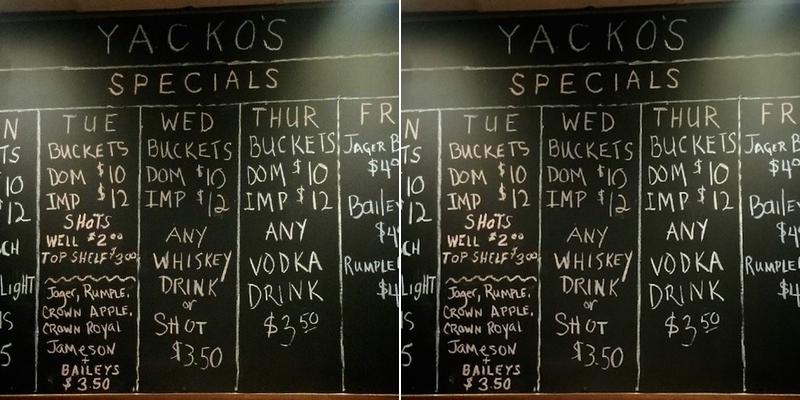 YACKO'S
SPECIALS
N
TS
10
12
CH
LIGHT
S
5
TUE
BUCKETS
DOM $10
IMP $12
SHOTS
WELL $2.00
TOP SHELF $3.00
Jager, Rumple,
CROWN APPLE,
CROWN Royal
JAMESON
+
BAILEYS
$3.50
WED
BUCKETS
DOM $10
IMP $12
ANY
WHISKEY
DRINK
or
SHOT
$3.50
THUR
BUCKETS
DOM $10
IMP $12
ANY
VODKA
DRINK
$3.50
FR
JAGER B
$4
BAILEY
$4
RUMPLE
$4
YACKO'S
SPECIALS
N
TS
10
12
CH
LIGHT
S
5
TUE
BUCKETS
DOM $10
IMP $12
SHOTS
WELL $2.00
TOP SHELF $3.00
Jager, Rumple,
CROWN APPLE,
CROWN Royal
JAMESON
+
BAILEYS
$3.50
WED
BUCKETS
DOM $10
IMP $12
ANY
WHISKEY
DRINK
or
SHOT
$3.50
THUR
BUCKETS
DOM $10
IMP $12
ANY
VODKA
DRINK
$3.50
FR
JAGER B
$4
BAILEY
$4
RUMPLE
$4